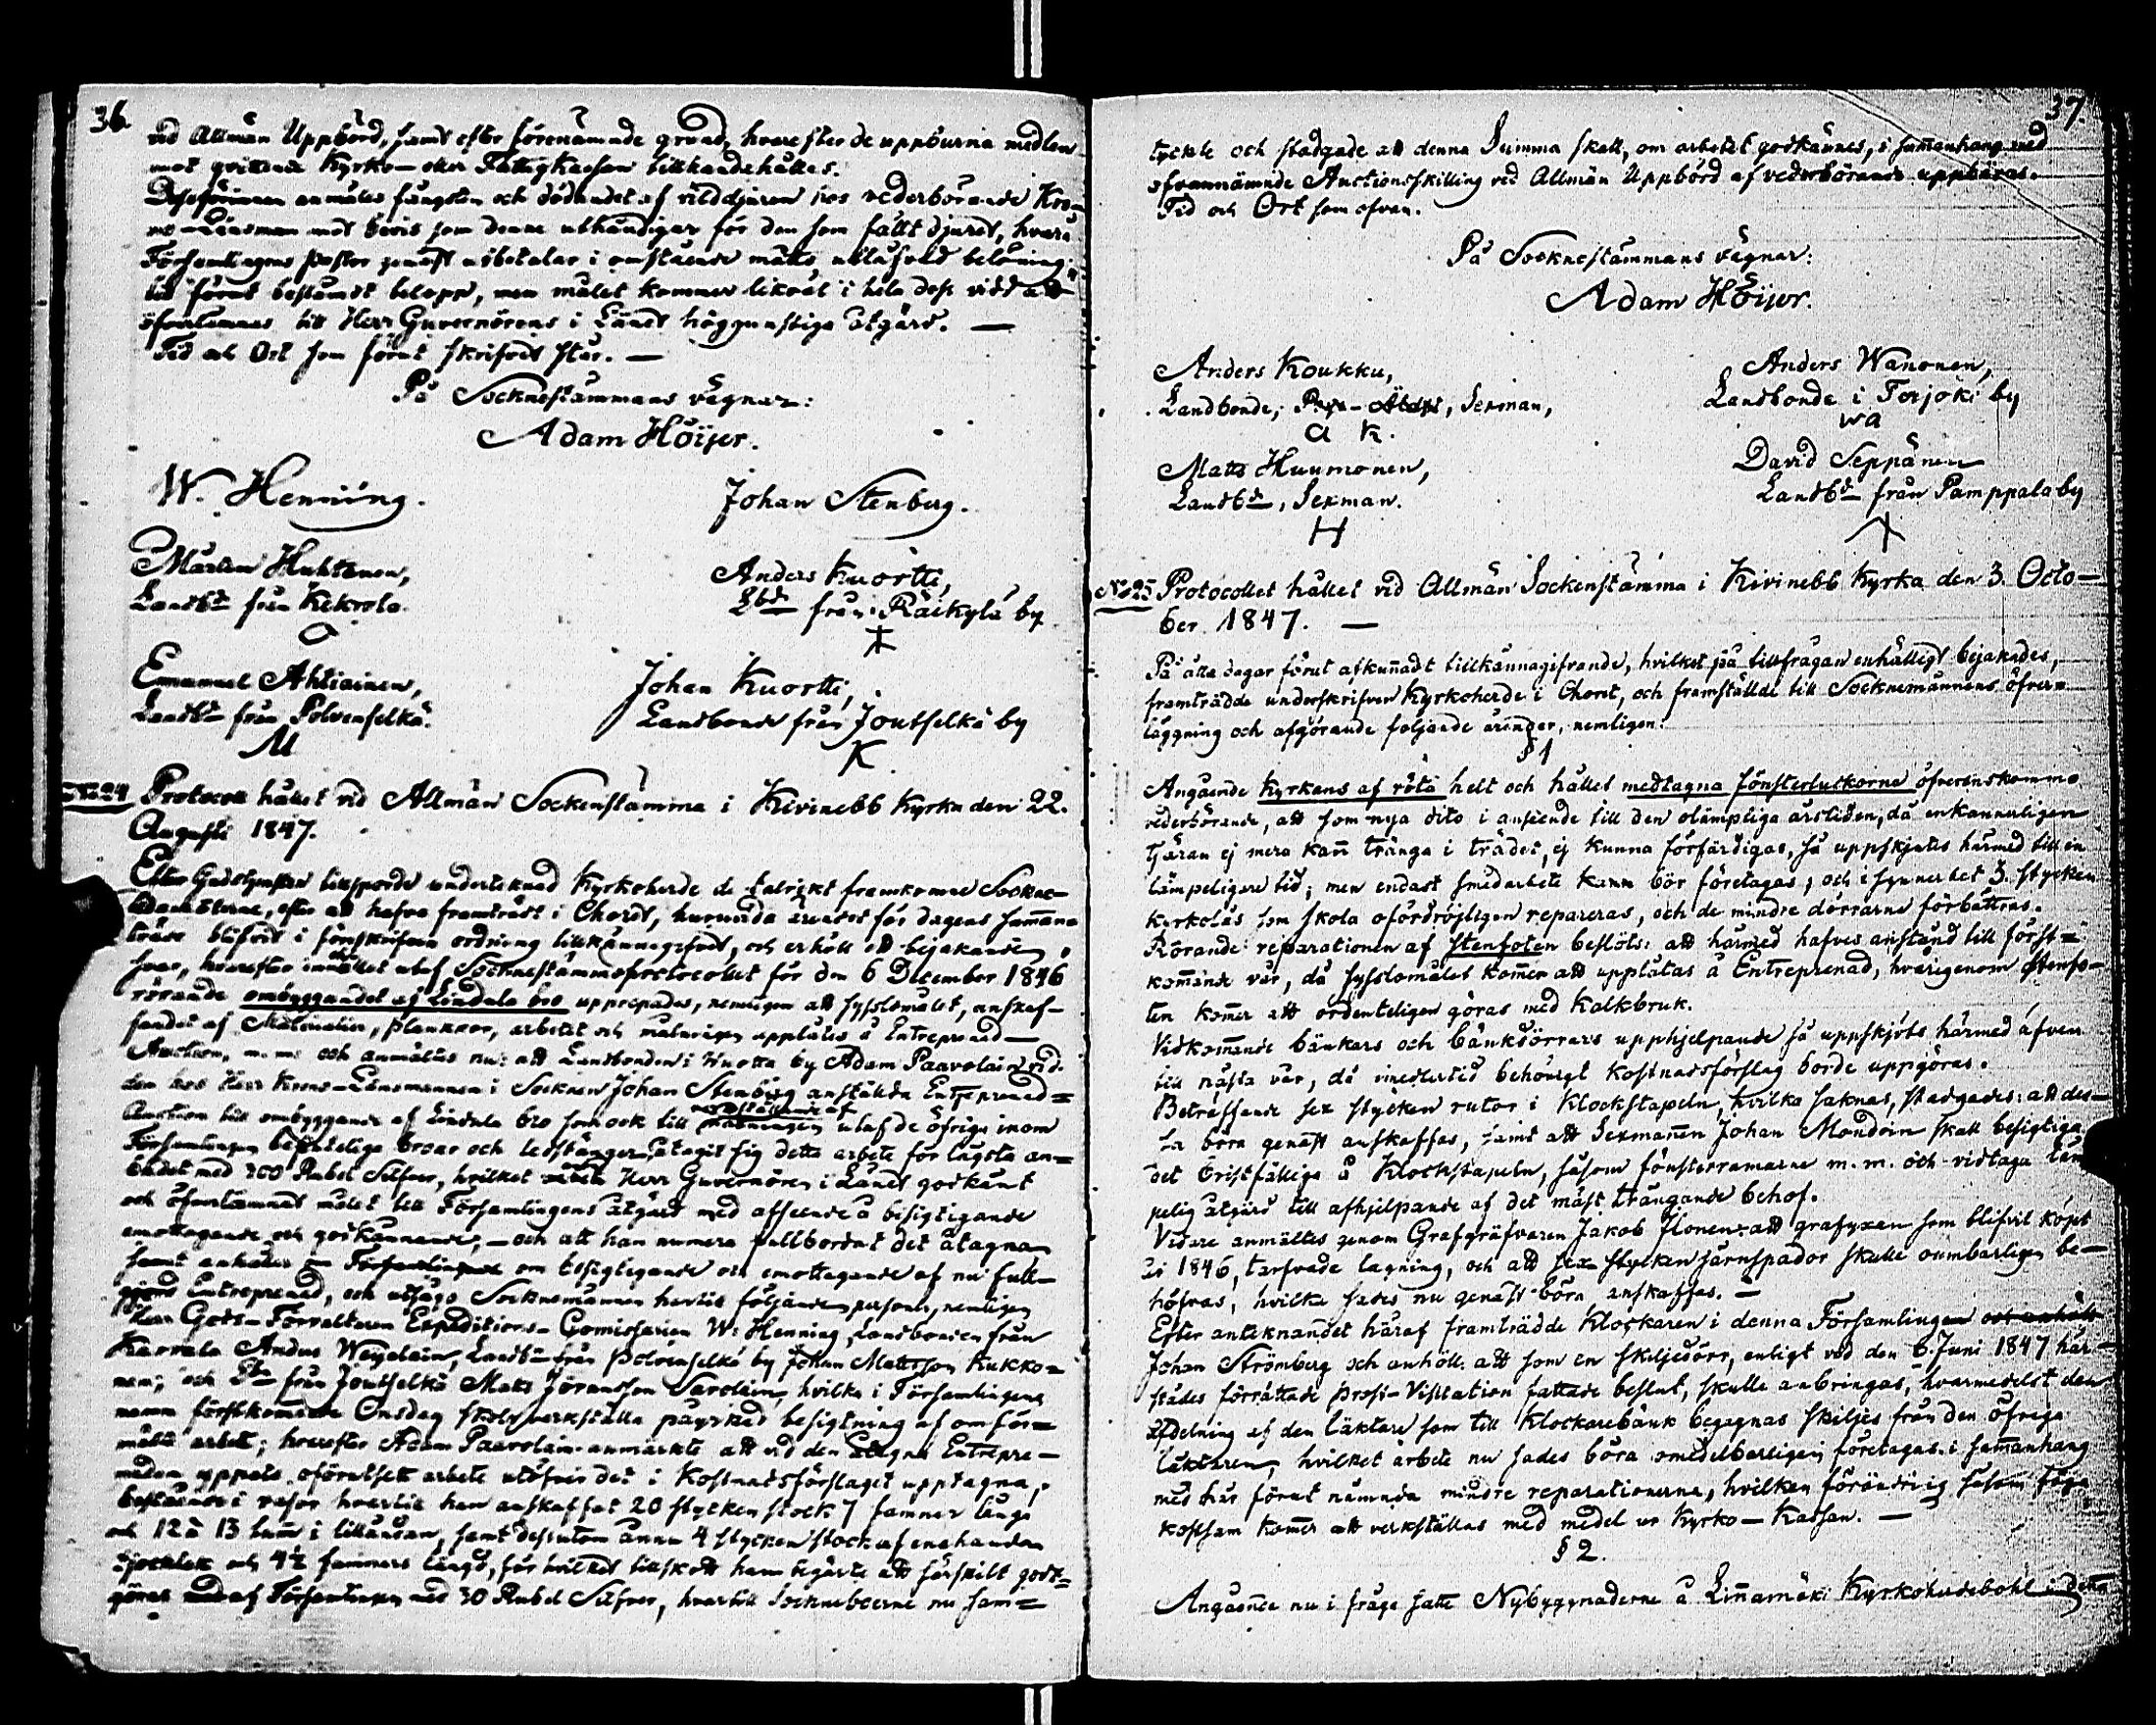 36.
vid Allmän Uppbörd, samt efter förenämnde grund, hvarefter de uppburna medlen
mot qvittence Kyrko- eller Fattigkassan tillhandahålles.
Dessförinnan anmäles fångsten och dödandet af vilddjuren hos vederbörande Kro-
no-Länsman mot bevis som denne uthändigar för den som fällt djuret, hvars
Församlingens Pastor genast utbetalar i omstående måtto utlåfvad belöning
till förut bestämdt belopp, men målet kommer likväl i hela dess vidd att
öfverlemnas till Herr Guvernörens i Länet höggunstiga åtgärd. —
Tid och Ort som förut skrifvet står. —
På Socknestämmans vägnar:
Adam Höijer.
W. Henning.
Johan Stenberg.
Mårten Huhtanen,
Landbde från Kekrola.
O
Anders Kuortti,
Lbde från Räikylä by
Emanuel Ahtiainen,
Landbde från Polvenselkä.
M
Johan Kuortti,
Landbonde från Joutselkä by
K
No 24 Protocoll hållet vid Allmän Sockenstämma i Kivinebb Kyrka den 22.
Augusti 1847.
Efter Gudstjensten tillsporde undertecknad Kyrkoherde de talrikt framkomne Sockne-
boerne, efter att hafva framträdt i Choret, huruvida ärendet för dagens samman-
träde blifvit i föreskrifven ordning tillkännagifvet, och erhöll ett bejakande
svar, hvarefter innehållet utaf Socknestämmoprotocollet för den 6 December 1846
rörande ombyggandet af Lindula bro upprepades, nemligen att sysslomålet, anskaf-
fandet af Materialier, plankor, arbetet och målningen upplåtes å Entreprenad-
Auction, m. m. och anmältes nu: att Landbonden i Huotta by Adam Paavolain vid
den hos Herr Krono-Länsmannen i Socknen Johan Stenberg anställda Entreprenad-
Auction till ombyggande af Lindula bro som ock till målningen utaf de öfriga inom
Församlingen befintelige broar och ledstänger, åtagit sig detta arbete för lägsta an-
budet med 300 Rubel Silfver, hvilket Herr Guvernören i Länet godkänt
och öfverlämnat målet till Församlingens åtgärd med afseende å besigtigande
emottagande och godkännande, — och att han numera fullbordat det åtagna
samt anhåller om besigtigande och emottagande af nu full-
gjord Entreprenad, och utsågo Socknemännen hertill följande personer, nemligen
Herr Gods-Förvaltaren Expeditions-Comissarien W. Henning, Landbonden från
Karvala Anders Weijelain, Landbde från Polvenselkä by Johan Mattsson Kukko-
nen; och Lbde från Joutselkä Mats Jöransson Savolain, hvilka i Församlingens
namn förstkommande Onsdag skola verkställa påyrkad besigtning af omför-
mälta arbete; hvarefter Adam Paavolain anmärkte att vid den åtagna Entrepre-
naden uppstå oförutsett arbete utöfver det i Kostnadsförslaget upptagna,
bestående i resor hvartill han anskaffat 20 stycken stock 7 famnar långa
och 12 à 13 tum i lilländan, samt dessutom ännu 4 stycken stock af enahanda
tjocklek och 4½ famnars längd, för hvilket tillskott han begärte att särskilt godt-
göras utaf Församlingen med 30 Rubel Silfver, hvartill Sockneboerne nu sam-
37.
tyckte och stadgade att denna Summa skall, om arbetet godkännes, i sammanhang med
ofvannämnde Auctionsskilling vid Allmän Uppbörd af vederbörande uppbäras.
Tid och Ort som ofvan.
På Socknestämmans vägnar:
Adam Höijer.
Anders Koukku,
Landbonde, Sexman,
A K.
Anders Wanonen,
Landbonde i Torjoki by
WA
Matts Huumonen,
Landbde, Sexman.
H
David Seppänen
Landbde från Pamppala by
No 25 Protocollet hållet vid Allmän Sockenstämma i Kivinebb Kyrka den 3. Octo-
ber 1847. —
På åtta dagar förut afkunnadt tillkännagifvande, hvilket på tillfrågan enhälligt bejakades,
framträdde underskrifven Kyrkoherde i Choret, och framställde till Socknemännens öfver-
läggning och afgörande följande ärender, nemligen:
§ 1
Angående Kyrkans af röta helt och hållet medtagna fönsterluckorne öfverenskommo
vederbörande, att som nya dito i anseende till den olämpliga årstiden, då enkannerligen
tjäran ej mera kan tränga i trädet, ej kunna förfärdigas, så uppskjutes härmed till en
lämpeligare tid; men endast smedarbete kan bör företagas; och i synnerhet 3. stycken
kyrkolås som skola ofördröjligen repareras, och de mindre dörrarne förbättras.
Rörande reparationen af Stenfoten beslöts: att härmed hafves anstånd till först-
kommande vår, då sysslomålet kommer att upplåtas å Entreprenad, hvarigenom Stenfo-
ten kommer att ordenteligen göras med Kalkbruk.
Vidkommande bänkars och bänkdörrars upphjelpande så uppskjöts härmed äfven
till nästa vår, då imedlertid behörigt kostnadsförslag borde uppgöras.
Beträffande sex stycken rutor i Klockstapeln, hvilka saknas, stadgades: att des-
sa böra genast anskaffas, samt att Sexmannen Johan Mondoin skall besigtiga
det bristfälliga å Klockstapeln, såsom fönsterramarne m. m. och vidtaga läm
pelig åtgärd till afhjelpande af det mäst trängande behof.
Vidare anmältes genom Grafgräfvaren Jakob Ilonen: att grafyxan som blifvit köpt
år 1846, tarfvade lagning, och att sex stycken järnspador skulle oumbärligen be-
höfvas, hvilka sades nu genast böra anskaffas. —
Efter anteknandet häraf framträdde Klockaren i denna Församlingen
Johan Strömberg och anhöll: att som en skiljedörr, enligt vid den 6 Juni 1847 här-
städes förrättade Prost-Visitation fattade beslut, skulle anbringas, hvarmedelst den
afdelning af den läktare som till Klockarebänk begagnas skiljes från den öfriga
läktaren, hvilket arbete nu sades böra omedelbarligen företagas i sammanhang
med här förut nämnda mindre reparationerna, hvilken förändring såsom föga
kostsam kommer att verkställas med medel ur Kyrko-Kassan. —
§ 2.
Angående nu i fråga satte Nybyggnaderne å Linnamäki Kyrkoherdebohl i detta